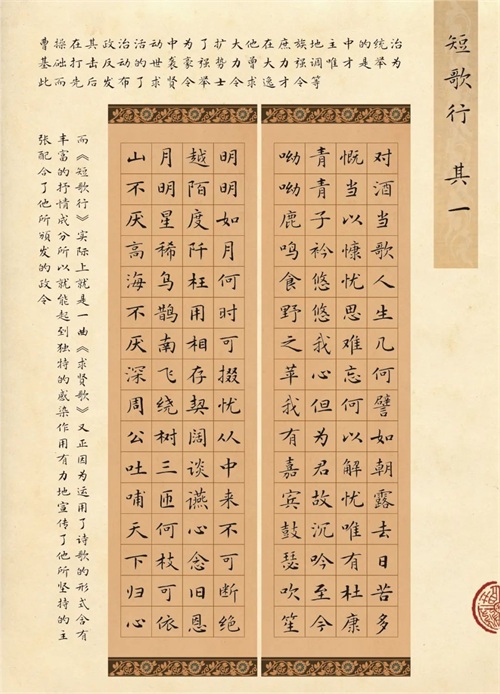 短歌行 其一
曹操在其政治活动中为了扩大他在庶族地主中的统治
基础打击反动的世袭豪强势力曾大力强调唯才是举为
此而先后发布了求贤令举士令求逸才令等
对酒当歌人生几何譬如朝露去日苦多
慨当以慷忧思难忘何以解忧唯有杜康
青青子衿悠悠我心但为君故沉吟至今
呦呦鹿鸣食野之苹我有嘉宾鼓瑟吹笙
明明如月何时可掇忧从中来不可断绝
越陌度阡枉用相存契阔谈讌心念旧恩
月明星稀乌鹊南飞绕树三匝何枝可依
山不厌高海不厌深周公吐哺天下归心
而《短歌行》实际上就是一曲《求贤歌》又正因为运用了诗歌的形式含有
丰富的抒情成分所以就能起到独特的感染作用有力地宣传了他所坚持的主
张配合了他所颁发的政令